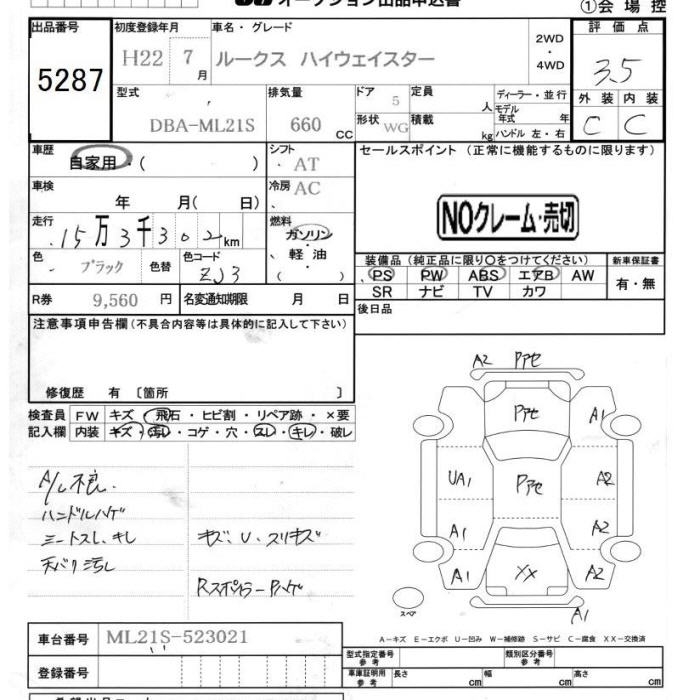 オークション出品申込書
①会場控
出品番号 初度登録年月 車名・グレード 評価点
5287 H22 7月 ルークス ハイウェイスター 2WD・4WD 3.5
型式 排気量 ドア 定員 ディーラー・並行 外装 内装
DBA-ML21S 660 CC 5 人 モデル年式 年 C C
形状 WG 積載 kg ハンドル 左・右
車歴 シフト セールスポイント (正常に機能するものに限ります)
自家用・( ) ・AT
車検 冷房 AC
年 月( 日)
NOクレーム・売切
走行 燃料
15万3千302km ガソリン
、軽油
( )
色 色替 色コード
ブラック ZJ3
装備品 (純正品に限り○をつけてください) 新車保証書
PS PW ABS エアB AW 有・無
SR ナビ TV カワ
R券 9,560 円 名変通知期限 月 日
後日品
注意事項申告欄 (不具合内容等は具体的に記入して下さい)
修復歴 有 〔箇所 〕
検査員 FW キズ・飛石・ヒビ割・リペア跡・×要
記入欄 内装 キズ・汚レ・コゲ・穴・スレ・キレ・破レ
A/C不良
ハンドルハゲ
ミートスレ、キレ
天バリ汚レ
キズ、U、スリキズ
Rスポイラー Pハゲ
A2 Pアセ
Pアセ A1
UA1 Pアセ A2
A1 A2
A1 XX A2
A1
スペア
A-キズ E-エクボ U-凹み W-補修跡 S-サビ C-腐食 XX-交換済
車台番号 ML21S-523021
型式指定番号 参考 類別区分番号 参考
登録番号
車庫証明用 参考 長さ cm 幅 cm 高さ cm